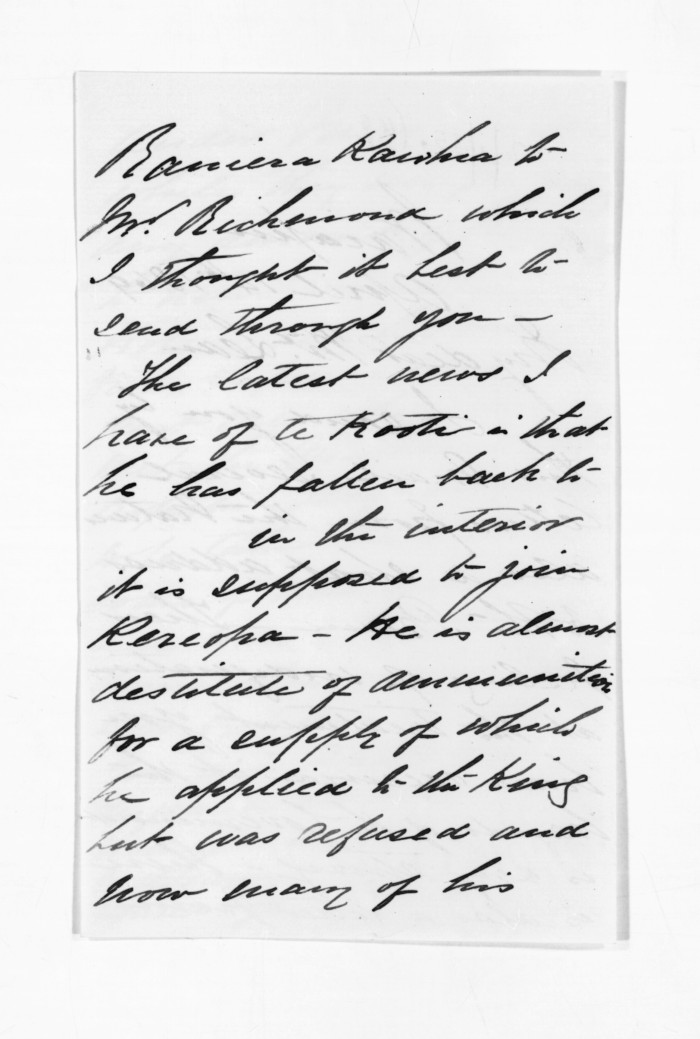 Raniera Kawhia to
Mr. Richmond which
I thought it best to
send through you –
The latest news I
have of te Kooti is that
he has fallen back to
in the interior
it is supposed to join
Kereopa – He is almost
destitute of ammunition
for a supply of which
he applied to the King
but was refused and
now many of his